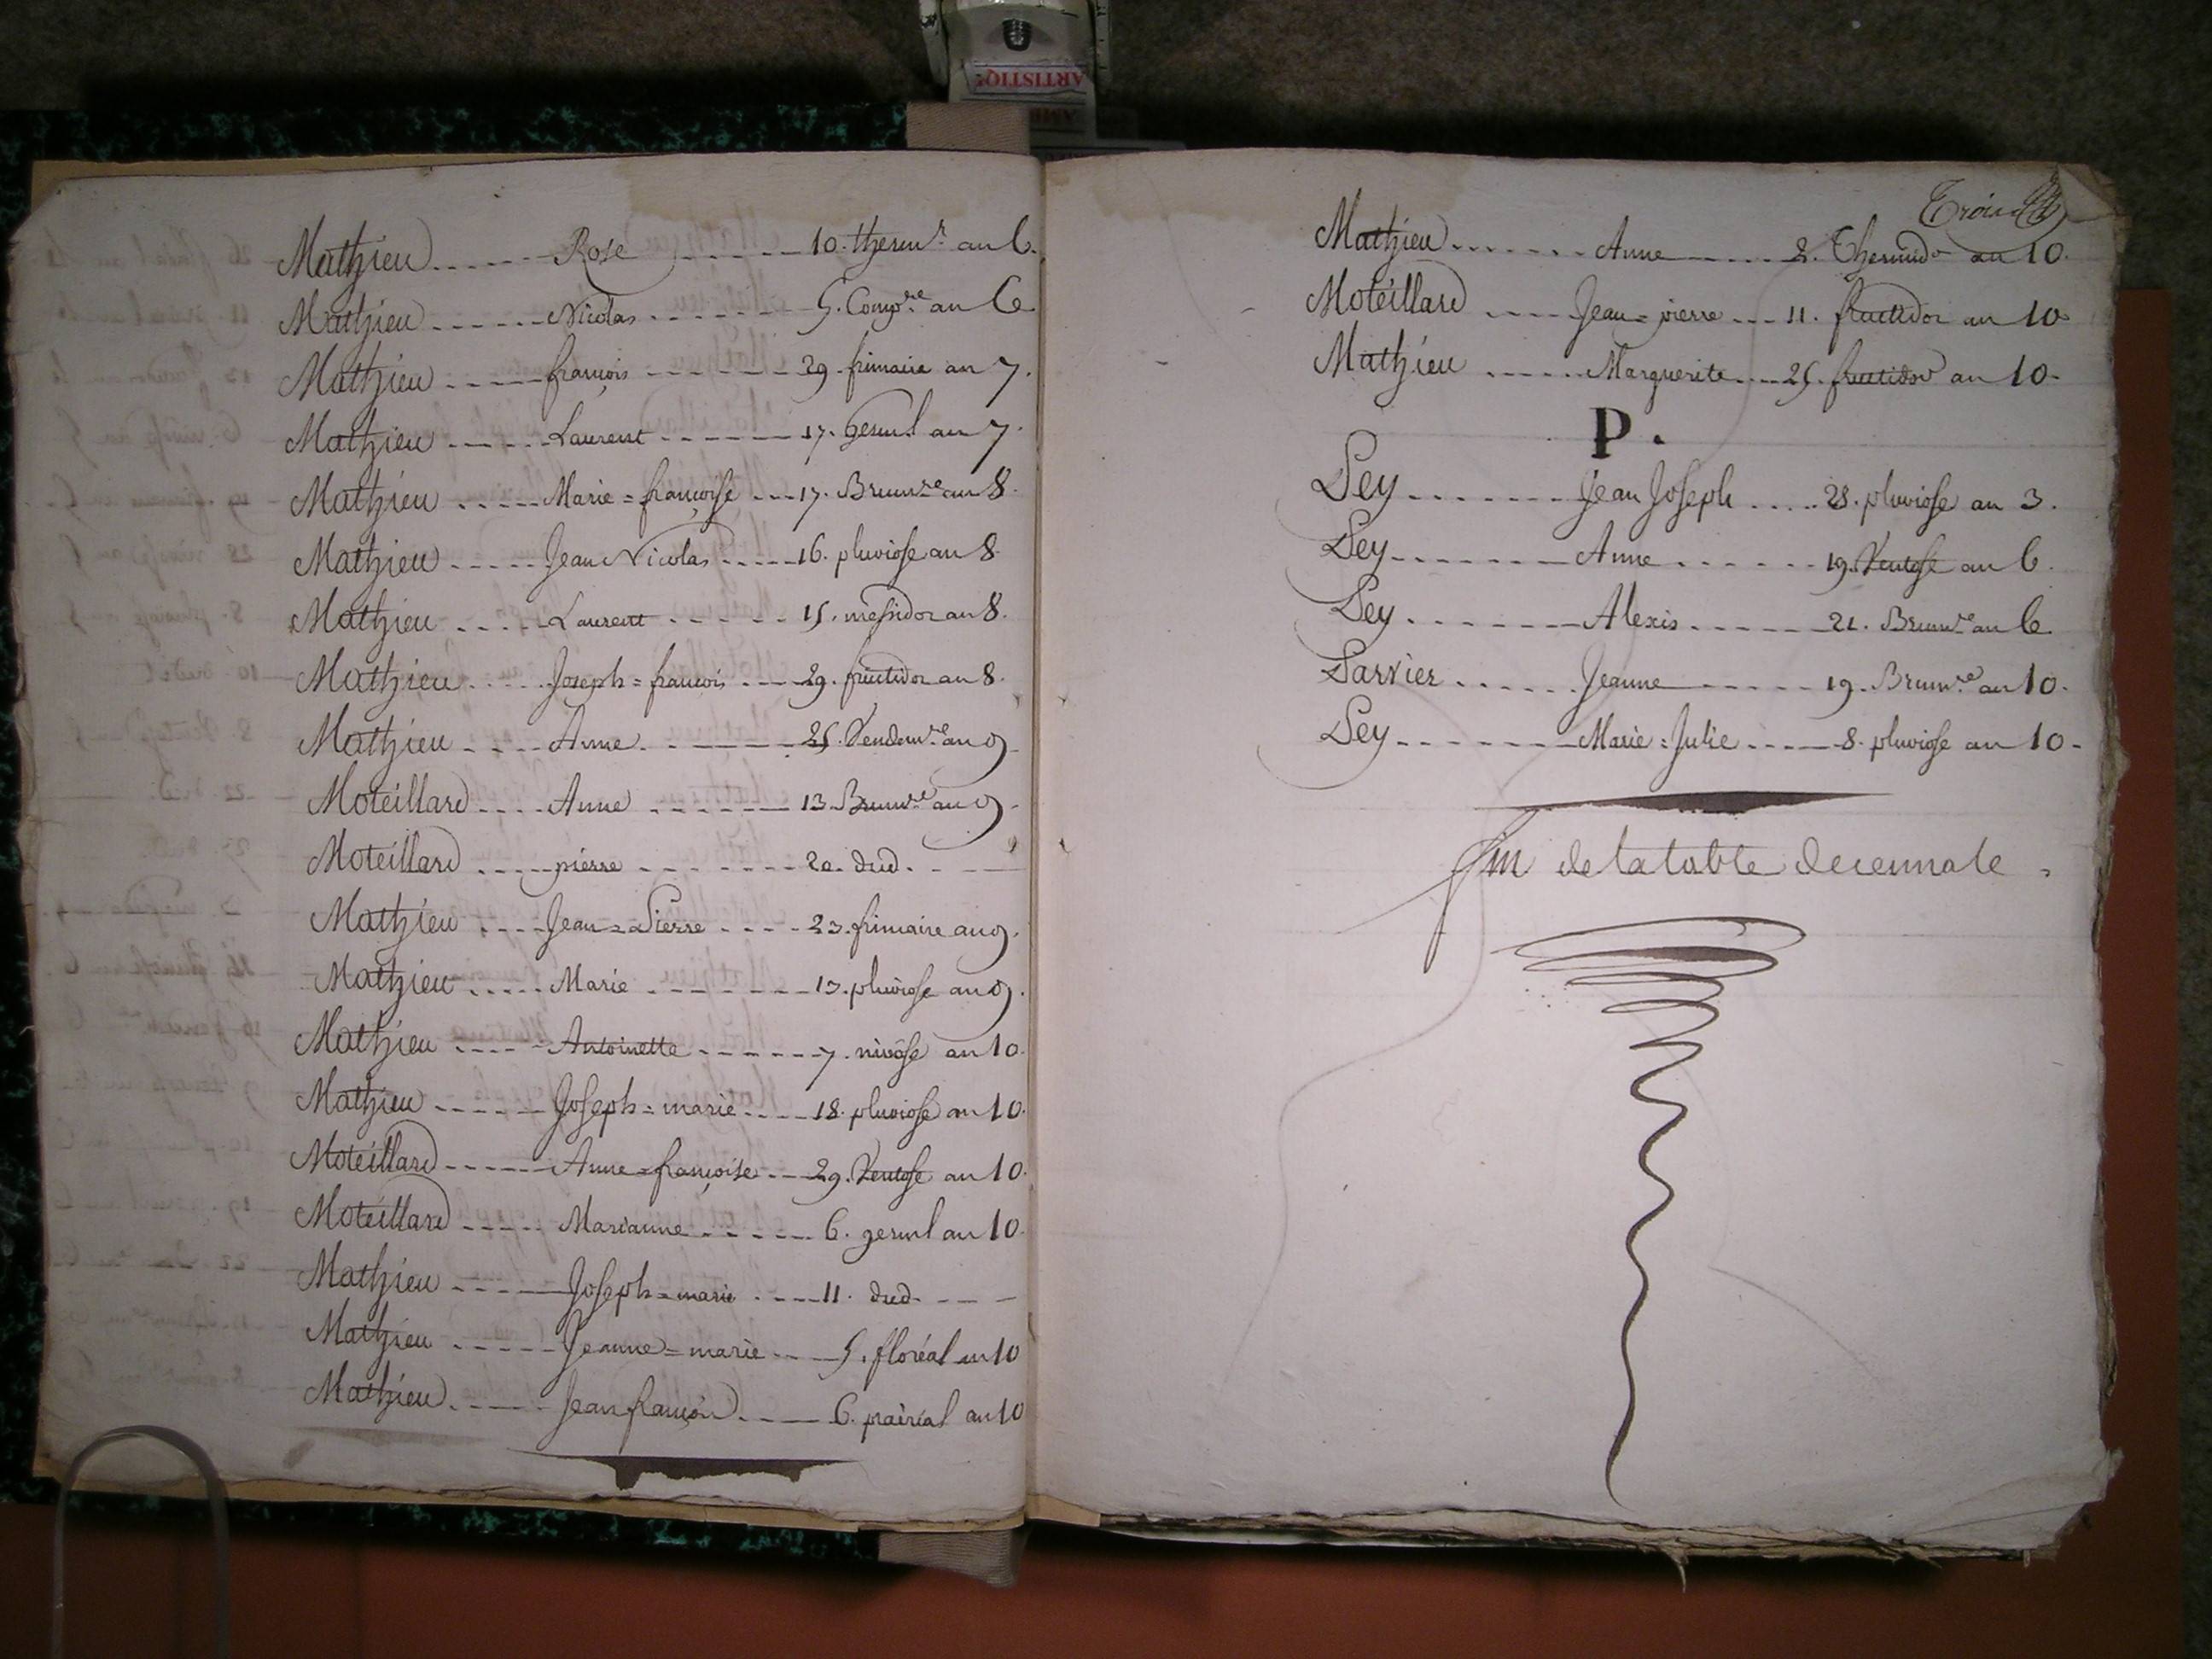 Mathieu ...... Rose ...... 10. therm.r an 6.
Mathieu ...... Nicolas ...... 5. Comp.re an 6
Mathieu ..... françois ....... 29. frimaire an 7.
Mathieu ..... Laurent ...... 17. Germl an 7.
Mathieu ..... Marie=françoise ... 17. Brum.re an 8.
Mathieu ..... Jean Nicolas ..... 16. pluviose an 8.
Mathieu .... Laurent ..... 15. messidor an 8.
Mathieu .... Joseph=françois ... 29. fructidor an 8.
Mathieu .... Anne ..... 25. Vendem.re an 9.
Moteillard .... Anne ..... 13. Brum.re an 9.
Moteillard .... pierre ...... 20. dud. ...
Mathieu .... Jean=Pierre .... 23. frimaire an 9.
Mathieu ..... Marie ...... 13. pluviose an 9.
Mathieu .... Antoinette ...... 7. nivôse an 10.
Mathieu ..... Joseph=marie .... 18. pluviose an 10.
Moteillard ..... Anne=françoise ... 29. Ventose an 10.
Moteillard ..... Marianne ..... 6. germl an 10.
Mathieu ..... Joseph=marie .... 11. dud. ...
Mathieu ..... Jeanne=marie .... 5. floréal an 10
Mathieu ..... Jean françois .... 6. prairéal an 10
Mathieu ...... Anne ..... 2. Thermidor an 10.
Moteillard .... Jean=pierre ... 11. fructidor an 10.
Mathieu ..... Marguerite ... 25. fructidor an 10.
P.
Pey ....... Jean Joseph ..... 28. pluviose an 3.
Pey ....... Anne ...... 19. Ventose an 6.
Pey ....... Alexis ..... 21. Brum.re an 6.
Parvier ..... Jeanne ..... 19. Brum.re an 10.
Pey ....... Marie=Julie .... 8. pluviose an 10.
fin de la table decennale.
ARTISTIQ